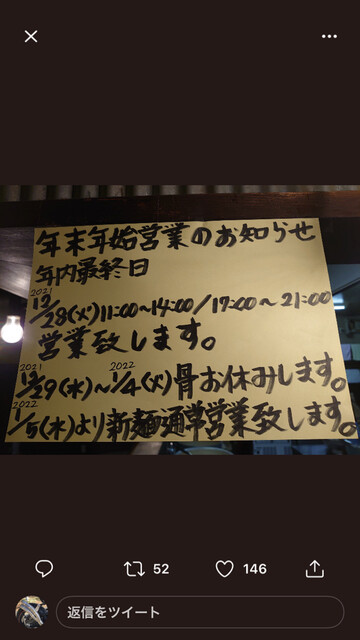 年末年始営業のお知らせ
年内最終日
2021
12/28(火)11:00~14:00/17:00~21:00
営業致します。
2021 2022
12/29(水)~1/4(火)骨お休みします。
2022
1/5(水)より新麺通常営業致します。
52 146
返信をツイート